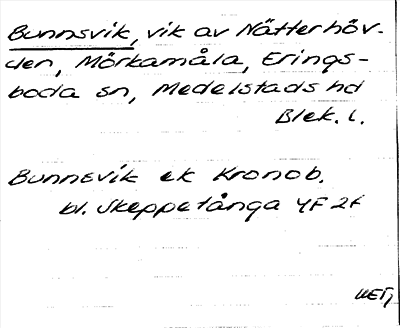 Bunnsvik, vik av Nätterhöv-
den, Mörkamåla, Erings-
boda sn, Medelstads hd
Blek. l.
Bunnsvik ek Kronob.
bl. Skeppetånga 4F 2f